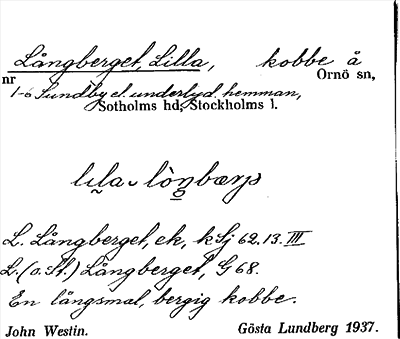 Långberget, Lilla, kobbe å
nr Ornö sn,
1-6 Sundby el. underlyd. hemman,
Sotholms hd, Stockholms l.
L. Långberget, ek, kSj 62.13. III
L. (o. St.) Långberget, G 68.
En långsmal, bergig kobbe.
John Westin. Gösta Lundberg 1937.